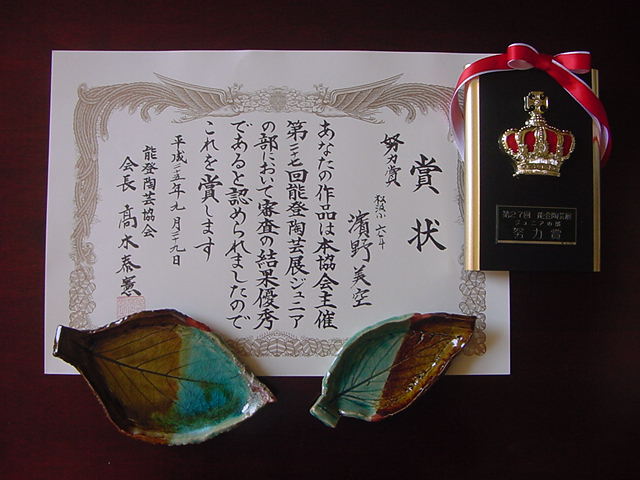 賞状
努力賞
松波小 六年
濱野美空
あなたの作品は本協会主催
第二七回能登陶芸展ジュニア
の部において審査の結果優秀
であると認められましたので
これを賞します
平成二五年九月二九日
能登陶芸協会
会長 髙木泰憲
第27回 能登陶芸展
ジュニアの部
努力賞